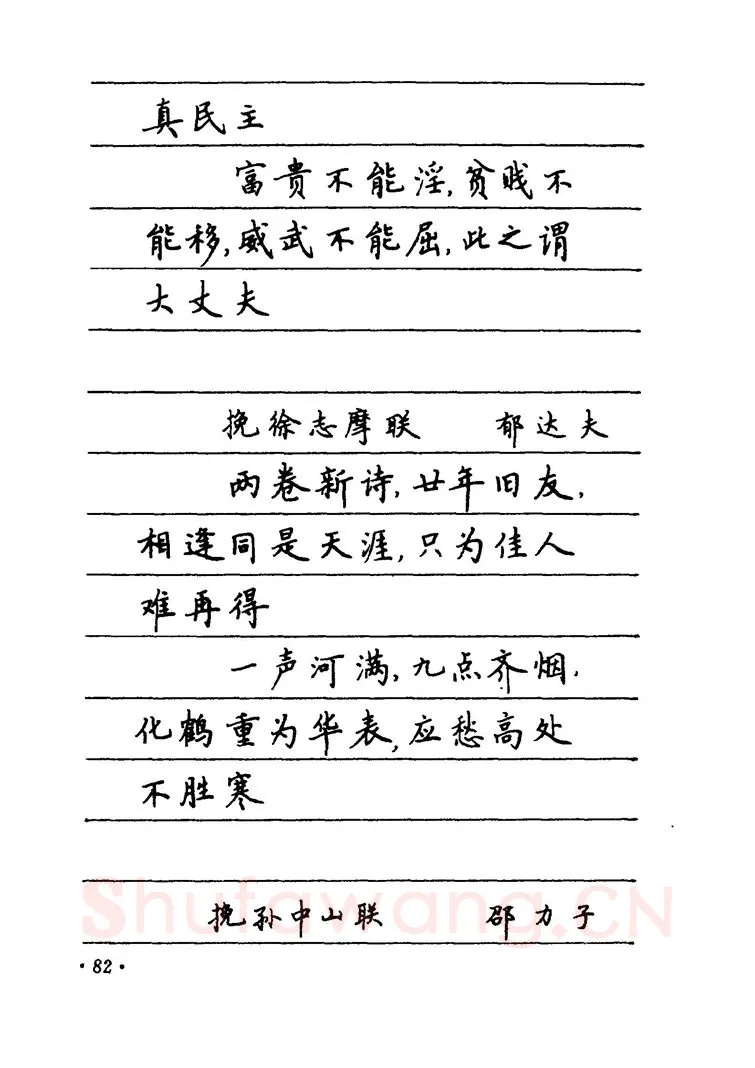 真民主
富贵不能淫,贫贱不
能移,威武不能屈,此之谓
大丈夫
挽徐志摩联 郁达夫
两卷新诗,廿年旧友,
相逢同是天涯,只为佳人
难再得
一声河满,九点齐烟,
化鹤重为华表,应愁高处
不胜寒
挽孙中山联 邵力子
Shufawang.CN
·82·